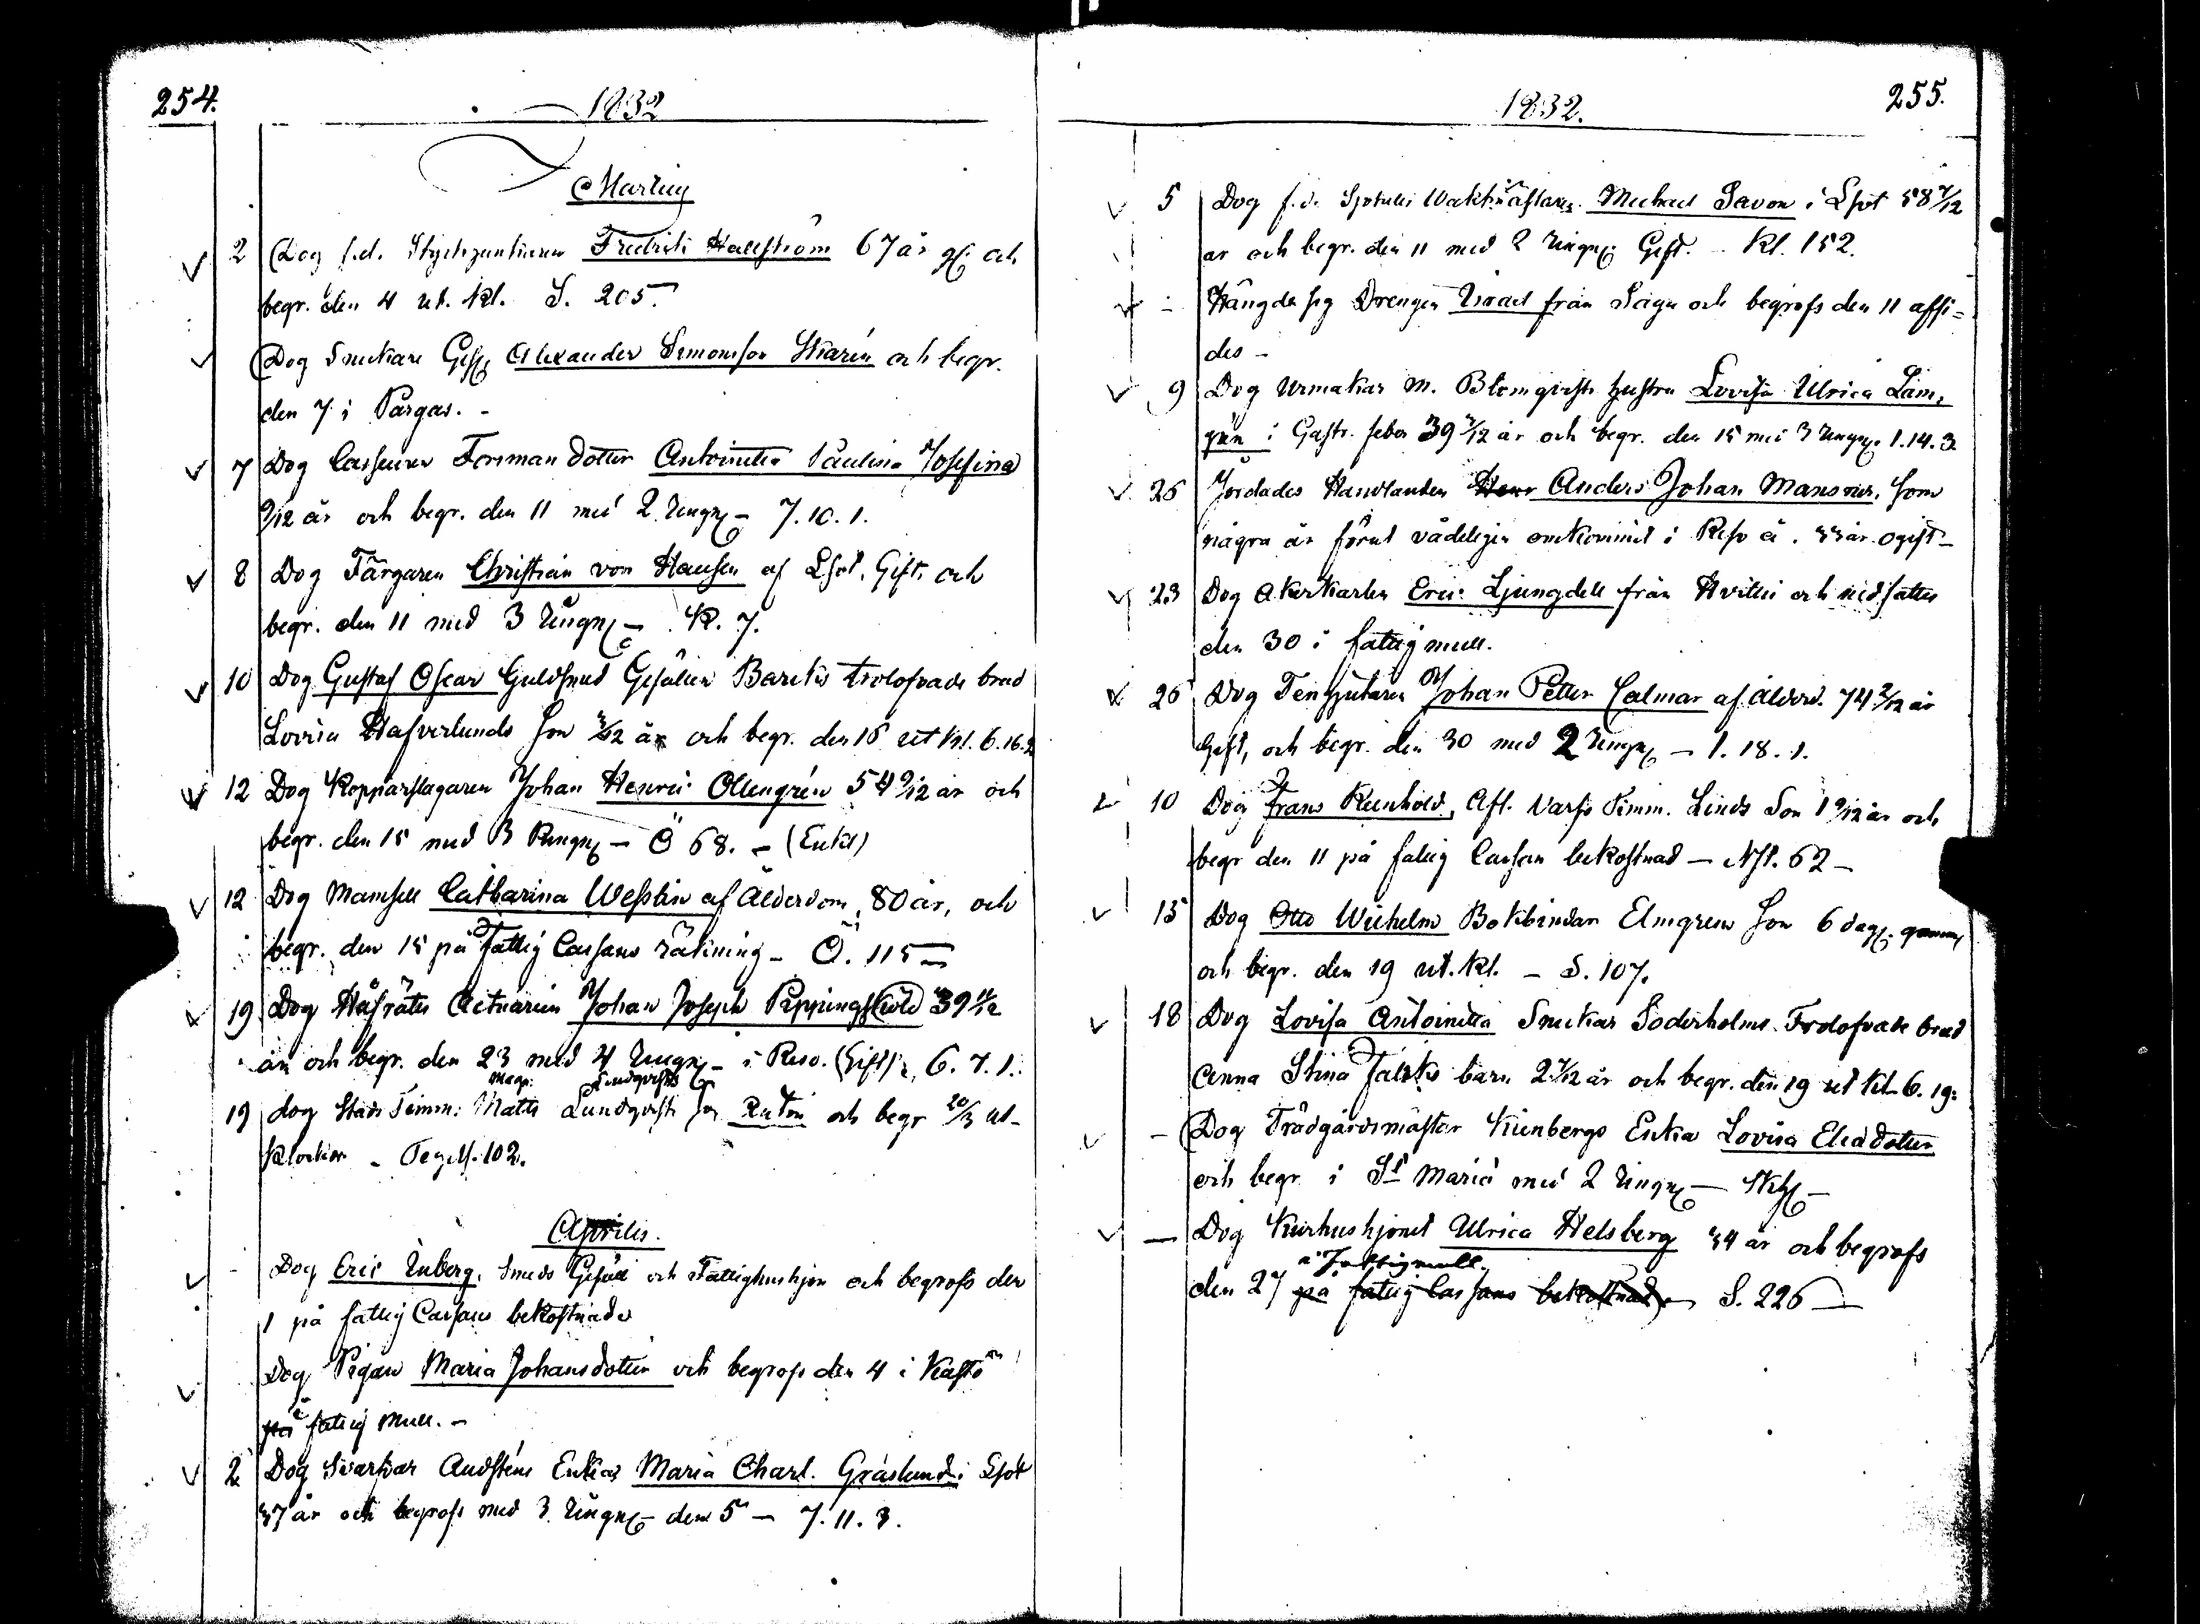 254.
1832
Martius
2 Dog f.d. Fredrik Hallström 67 år gl. och
begr. den 4 ut. Kl. S. 205.
Dog Snickare Ges. Alexander Simonsson Skarin och begr.
den 7 i Pargas. -
7 Dog Casseuren Forsman dotter Antoinetta Paulina Josefina
9/12 år och begr. den 11 med 2 Ringn. - 7.10.1.
8 Dog Färgaren Christian von Hausen af Lsot. Gift, och
begr. den 11 med 3 Ringn. - K. 7.
10 Dog Gustaf Oscar Guldsmed Gesällen Barckis trolofvade brud
Lovisa Hafverlunds son 3/12 år och begr. den 15 ut Kl. 6.16.2
12 Dog Kopparslagaren Johan Henric Ollengrén 54 9/12 år och
begr. den 15 med 3 Ringn. - Ö 68. - (Enkl)
12 Dog Mamsell Catharina Wesslin af Ålderdom, 80 år, och
begr. den 15 på Fattig Cassans räkning - Ö. 115 -
19 Dog Håfrätts Actuarien Johan Joseph Pippingsköld 39 11/12
år och begr. den 23 med 4 Ringn. - i Reso. (Gift) 6.7.1.
Magn. Lindqvists
19 dog Stads Timm: Matts Lundqvists son Anton och begr 20/3 ut-
Klockor - Tegelsl. 102.
Aprilis.
Dog Eric Enberg, Smeds Gesäll och Fattighushjon och begrofs den
1 på fattig Cassans bekostnad
Dog Pigan Maria Johansdotter och begrofs den 4 i Kastö
på i fattig mull. -
2 Dog Svarfvar Audsténs Enka Maria Charl. Gråslund i Lsot
37 år och begrofs med 3 Ringn. den 5 - 7.11.3.
1832.
255.
5 Dog f.d. Wacktmästaren Michael Savon i Lsot 58 7/12
år och begr. den 11 med 2 Ringn. Gift. - Kl. 152.
- Hängde sig Drengen Israel från och begrofs den 11 affi-
des -
9 Dog Urmakar M. Blomqvists hustru Lovisa Ulrica Lim-
gren i Gastr. feber 39 3/12 år och begr. den 15 med 3 Ringn. 1.14.3
26 Jordades Handlanden Herr Anders Johan Mansner, som
några år förut vådeligen omkommit i Reso å. 33 år ogift -
23 Dog Åkerkarlen Eric Ljungdell från Hvittis och nedsattes
den 30 i fattig mull.
26 Dog Tenngjutaren Johan Petter Calmar af ålderd. 74 2/12 år
Gift, och begr. den 30 med 2 Ringn. - 1.18.1.
10 Dog Frans Reinhold, Afl. Varfs Timm. Linds Son 1 9/12 år och
begr den 11 på fattig Cassan bekostnad - Nst. 62 -
15 Dog Otto Wilhelm Bokbindar Elmgrens son 6 dag. gammal
och begr. den 19 ut. Kl. - S. 107.
18 Dog Lovisa Antoinetta Snickar Söderholms Trolofvade brud
Anna Stina Falcks barn 2 7/12 år och begr. den 19 ut Kl. 6.19.
- Dog Trädgårdsmästar Kienbergs Enka Lovisa Eliædotter
och begr. i St Mariæ med 2 Ringn. -
- Dog Kurhushjonet Ulrica Helsberg 34 år och begrofs
i Fattigmull
den 27 på fattig Cassans bekostnad - S. 226 -